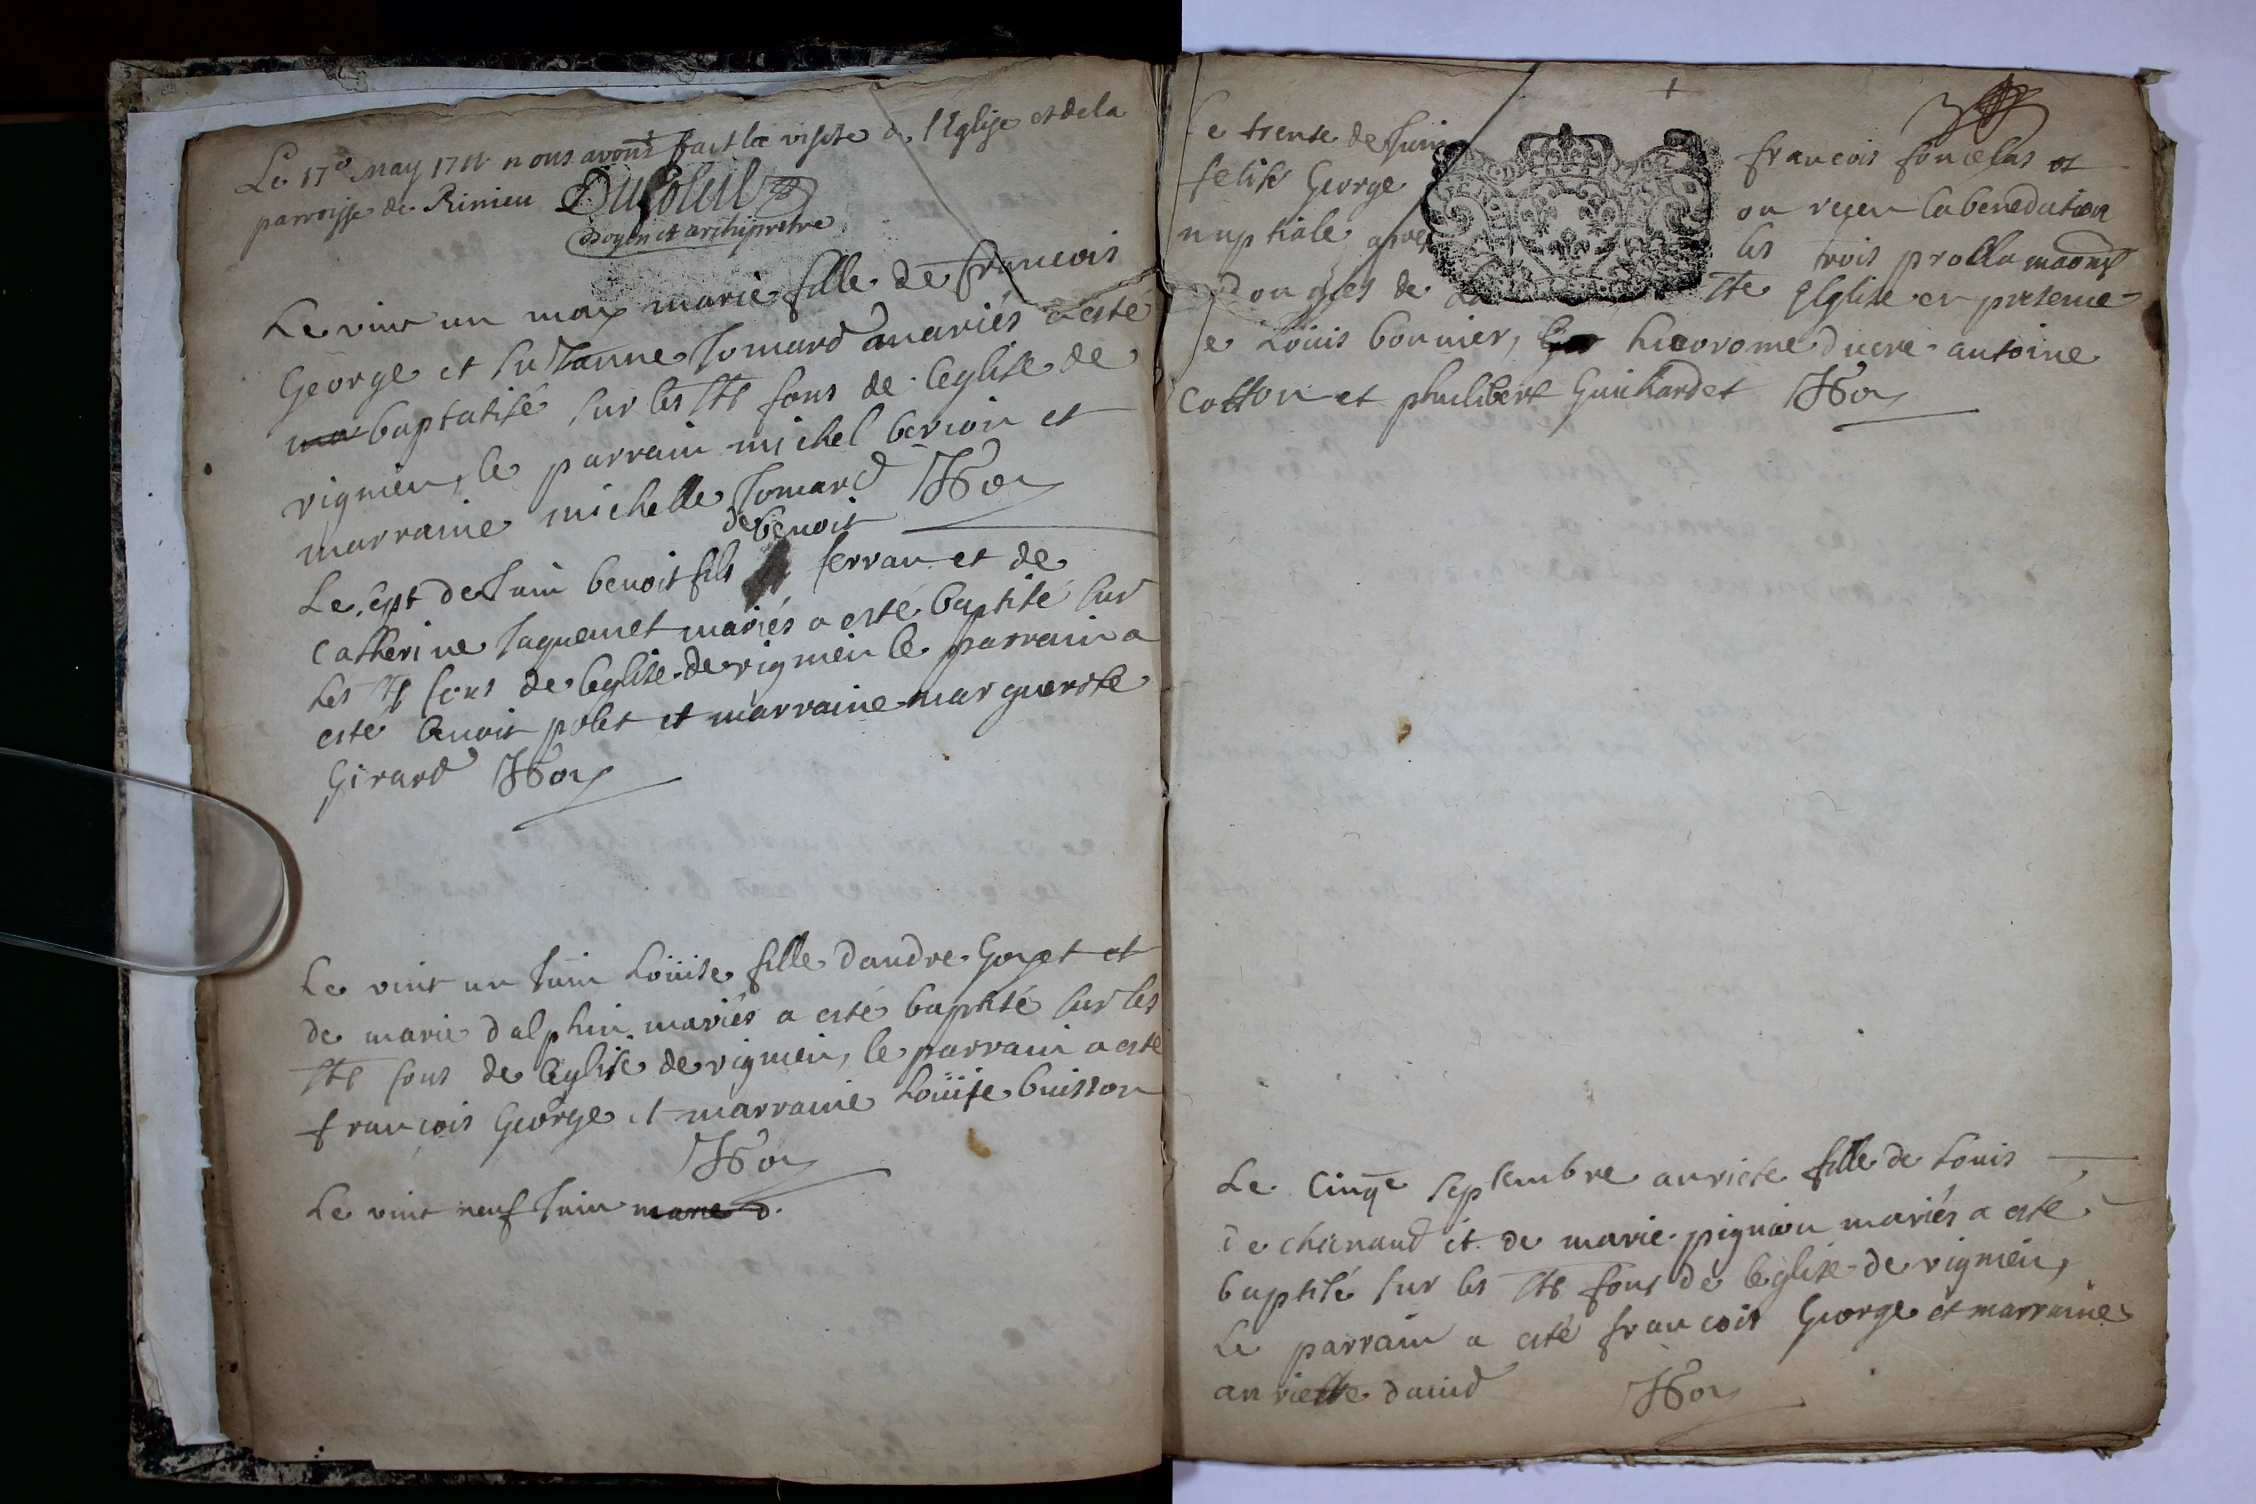 Le 17e May 1711 nous avons fait la visite de l'Eglise et de la
parroisse de Rinieu Dusoleil
Doyen et archipretre
Le vint un may marie fille de francois
George et Susanne Tomard mariés a esté
baptatisé sur les Sts fons de leglise de
vignieu, le parrain michel bervoin et
marraine michelle Tomard
de benoit
Le sept de Juin benoit fils ferran et de
Catherine Jaquemet mariés a esté baptisé sur
Les Sts fons de leglise de vignieu le parrain a
esté benoit polet et marraine marguerite
Girard
Le vint un Juin Loüise fille dandre Goyet et
de marie dalphin mariés a esté baptisé sur les
Sts fons de leglise de vignieu, le parrain a esté
françois George et marraine Loüise buisson
Le vint neuf Juin marie d.
Le trente de Juin francois et
felise George on receu la benediction
nuptiale apres les trois proclamaons
de Ste Eglise en presence
de Loüis bonnier, hieorome ducre antoine
Cotton et philibert Guichardet
Le Cinqe Septembre anriete fille de Louis
de chienaud et de marie pignion mariés a esté
baptisé sur les Sts fons de leglise de vignieu,
Le parrain a esté francois George et marraine
anriette david